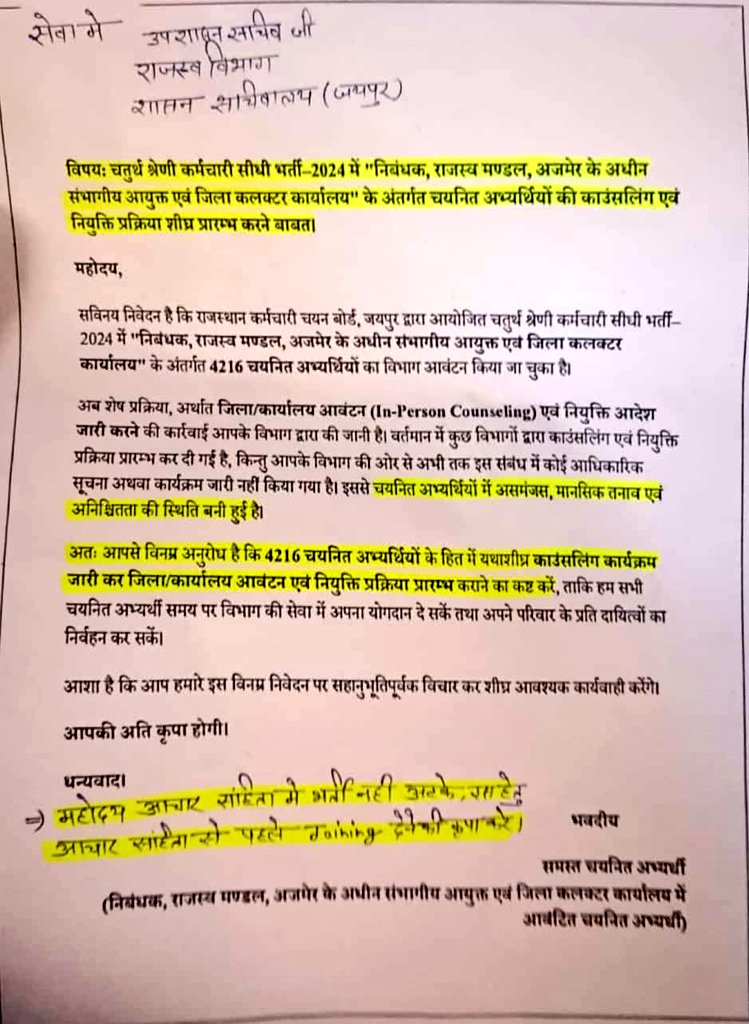 सेवा में उप शासन सचिव जी
राजस्व विभाग
शासन सचिवालय (जयपुर)
विषय: चतुर्थ श्रेणी कर्मचारी सीधी भर्ती–2024 में "निबंधक, राजस्व मण्डल, अजमेर के अधीन
संभागीय आयुक्त एवं जिला कलक्टर कार्यालय" के अंतर्गत चयनित अभ्यर्थियों की काउंसलिंग एवं
नियुक्ति प्रक्रिया शीघ्र प्रारम्भ करने बाबत।
महोदय,
सविनय निवेदन है कि राजस्थान कर्मचारी चयन बोर्ड, जयपुर द्वारा आयोजित चतुर्थ श्रेणी कर्मचारी सीधी भर्ती–
2024 में "निबंधक, राजस्व मण्डल, अजमेर के अधीन संभागीय आयुक्त एवं जिला कलक्टर
कार्यालय" के अंतर्गत 4216 चयनित अभ्यर्थियों का विभाग आवंटन किया जा चुका है।
अब शेष प्रक्रिया, अर्थात जिला/कार्यालय आवंटन (In-Person Counseling) एवं नियुक्ति आदेश
जारी करने की कार्रवाई आपके विभाग द्वारा की जानी है। वर्तमान में कुछ विभागों द्वारा काउंसलिंग एवं नियुक्ति
प्रक्रिया प्रारम्भ कर दी गई है, किन्तु आपके विभाग की ओर से अभी तक इस संबंध में कोई आधिकारिक
सूचना अथवा कार्यक्रम जारी नहीं किया गया है। इससे चयनित अभ्यर्थियों में असमंजस, मानसिक तनाव एवं
अनिश्चितता की स्थिति बनी हुई है।
अतः आपसे विनम्र अनुरोध है कि 4216 चयनित अभ्यर्थियों के हित में यथाशीघ्र काउंसलिंग कार्यक्रम
जारी कर जिला/कार्यालय आवंटन एवं नियुक्ति प्रक्रिया प्रारम्भ कराने का कष्ट करें, ताकि हम सभी
चयनित अभ्यर्थी समय पर विभाग की सेवा में अपना योगदान दे सकें तथा अपने परिवार के प्रति दायित्वों का
निर्वहन कर सकें।
आशा है कि आप हमारे इस विनम्र निवेदन पर सहानुभूतिपूर्वक विचार कर शीघ्र आवश्यक कार्यवाही करेंगे।
आपकी अति कृपा होगी।
धन्यवाद।
⇒ महोदय आचार संहिता में भर्ती नही अटके, इस हेतु
आचार संहिता से पहले Joining देने की कृपा करे।
भवदीय
समस्त चयनित अभ्यर्थी
(निबंधक, राजस्व मण्डल, अजमेर के अधीन संभागीय आयुक्त एवं जिला कलक्टर कार्यालय में
आवंटित चयनित अभ्यर्थी)